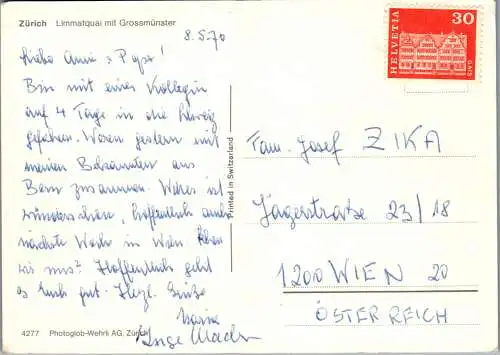 Zürich Limmatquai mit Grossmünster
8.5.70
Liebe Anni + Pepi!
Bin mit einer Kollegin
auf 4 Tage in die Schweiz
gefahren. Waren gestern mit
meinen Bekannten aus
Bern zusammen. Wetter ist
wunderschön, hoffentlich auch
nächste Woche in Wien
wir uns? Hoffentlich geht
es Euch gut. Herzl. Grüße
Inge
4277 Photoglob-Wehrli AG, Zürich
Printed in Switzerland
HELVETIA
30
GAIS
Fam. Josef ZIKA
Jägerstraße 23/18
1200 WIEN 20
ÖSTERREICH